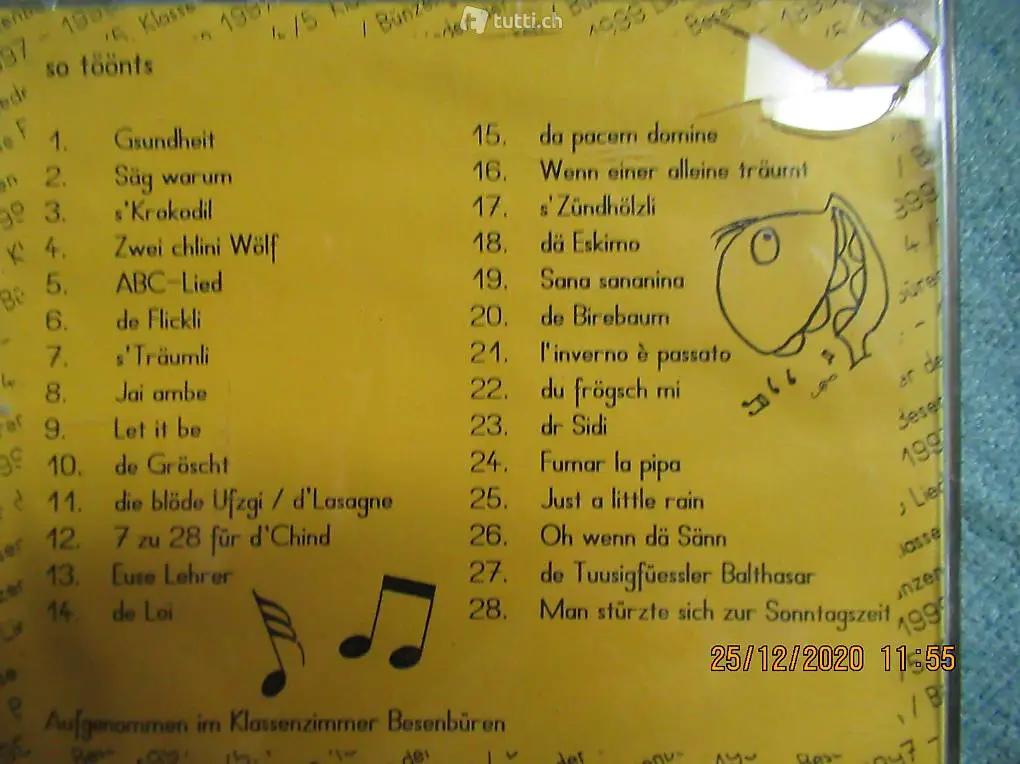 tutti.ch
so töönts
1. Gsundheit
2. Säg warum
3. s'Krokodil
4. Zwei chlini Wölf
5. ABC-Lied
6. de Flickli
7. s'Träumli
8. Jai ambe
9. Let it be
10. de Gröscht
11. die blöde Ufzgi / d'Lasagne
12. 7 zu 28 für d'Chind
13. Euse Lehrer
14. de Loi
15. da pacem domine
16. Wenn einer alleine träumt
17. s'Zündhölzli
18. dä Eskimo
19. Sana sananina
20. de Birebaum
21. l'inverno è passato
22. du frögsch mi
23. dr Sidi
24. Fumar la pipa
25. Just a little rain
26. Oh wenn dä Sänn
27. de Tuusigfüessler Balthasar
28. Man stürzte sich zur Sonntagszeit
25/12/2020 11:55
Aufgenommen im Klassenzimmer Besenbüren